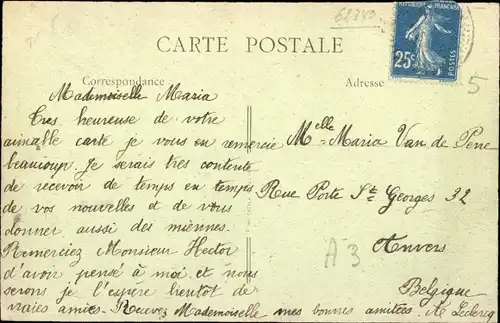 62340
RÉPUBLIQUE FRANÇAISE
25c
POSTES
CARTE POSTALE
Correspondance
Adresse
5
Mademoiselle Maria
Très heureuse de votre
aimable carte je vous en remercie
beaucoup. Je serais très contente
de recevoir de temps en temps
de vos nouvelles et de vous
donner aussi des miennes.
Remerciez Monsieur Hector
d'avoir pensé à moi et nous
serons je l'espère bientôt de
vraies amies. Recevez Mademoiselle mes bonnes amitiées. A. Leclercq
Melle Maria Van de Pene
Rue Porte St Georges 32
Anvers
A3
Belgique